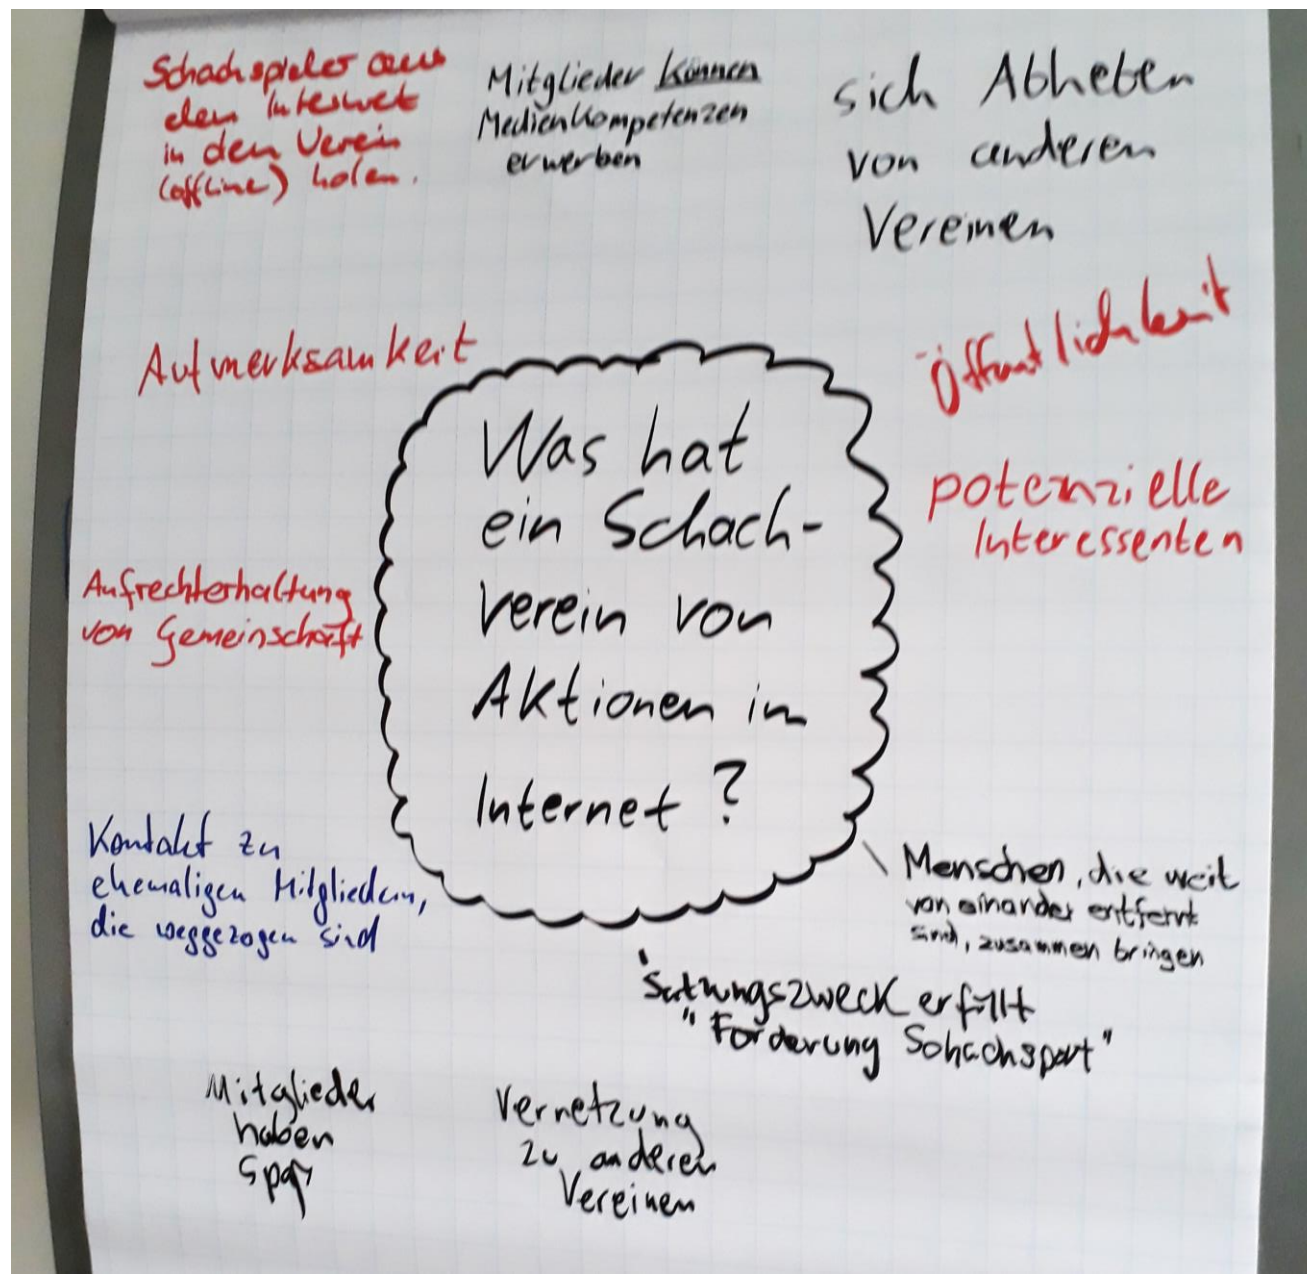 Schachspieler aus
dem Internet
in den Verein
(offline) holen.
Mitglieder können
Medienkompetenzen
erwerben
sich Abheben
von anderen
Vereinen
Aufmerksamkeit
Öffentlichkeit
potenzielle
Interessenten
Was hat
ein Schach-
verein von
Aktionen im
Internet?
Aufrechterhaltung
von Gemeinschaft
Kontakt zu
ehemaligen Mitgliedern,
die weggezogen sind
Menschen, die weit
von einander entfernt
sind, zusammen bringen
Satzungszweck erfüllt
"Förderung Schachsport"
Mitglieder
haben
Spaß
Vernetzung
zu anderen
Vereinen